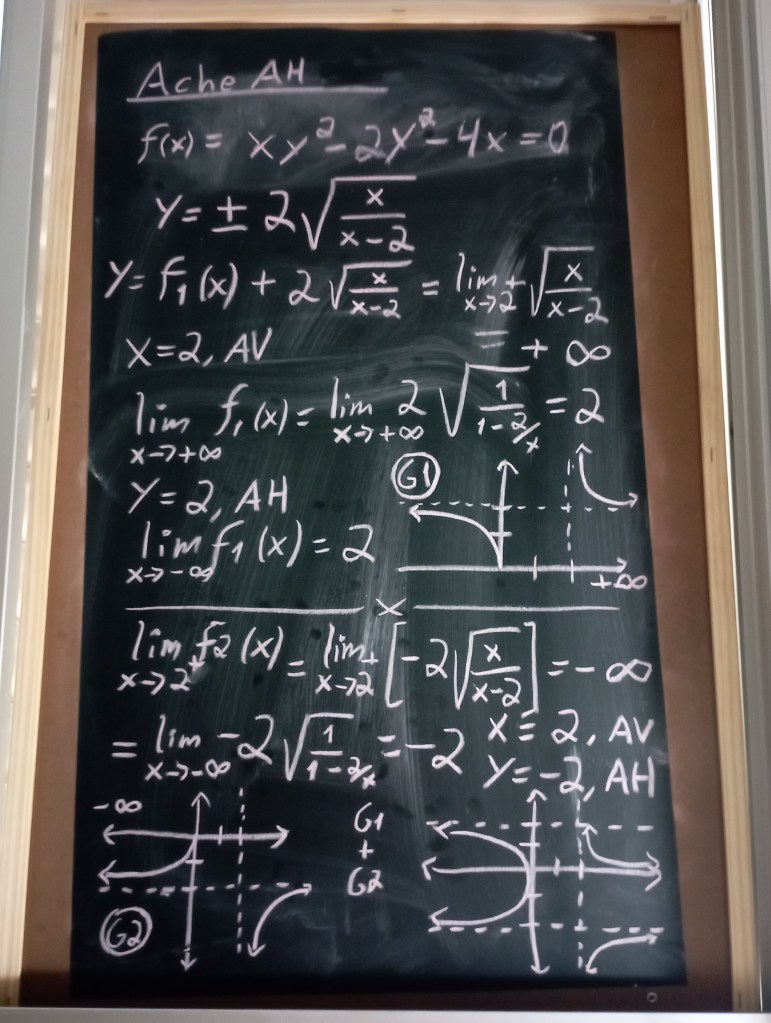 Ache AH
f(x) = xy² - 2y² - 4x = 0
y = ± 2√(x/(x-2))
y = f₁(x) + 2√(x/(x-2)) = lim x→2⁺ √(x/(x-2))
x = 2, AV = +∞
lim x→+∞ f₁(x) = lim x→+∞ 2√(1/(1-2/x)) = 2
y = 2, AH
G1
lim x→-∞ f₁(x) = 2
+∞
x
lim x→2⁺ f2(x) = lim x→2⁺ [-2√(x/(x-2))] = -∞
= lim x→-∞ -2√(1/(1-2/x)) = -2
x = 2, AV
y = -2, AH
-∞
G1
+
G2
G2